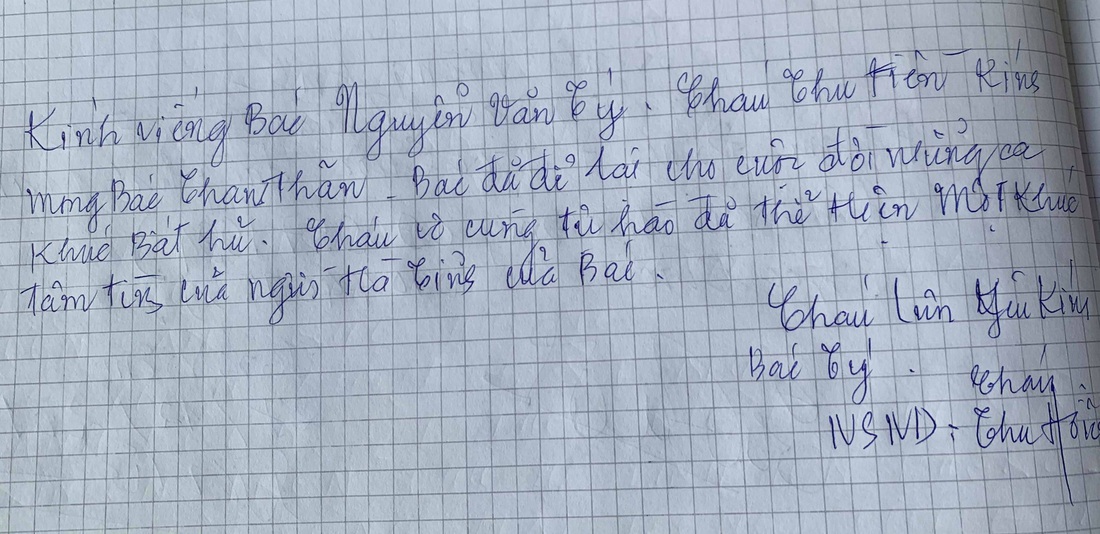 Kính viếng Bác Nguyễn Văn Tý. Cháu Thu Hiền Kính
mong Bác Thanh Thản. Bác đã để lại cho cuộc đời những ca
khúc Bất hủ. Cháu vô cùng tự hào đã thể hiện Một Khúc
tâm tình của người Hà Tĩnh của Bác.
Cháu luôn yêu Kính
Bác Tý. Cháu
NSND: Thu Hiền